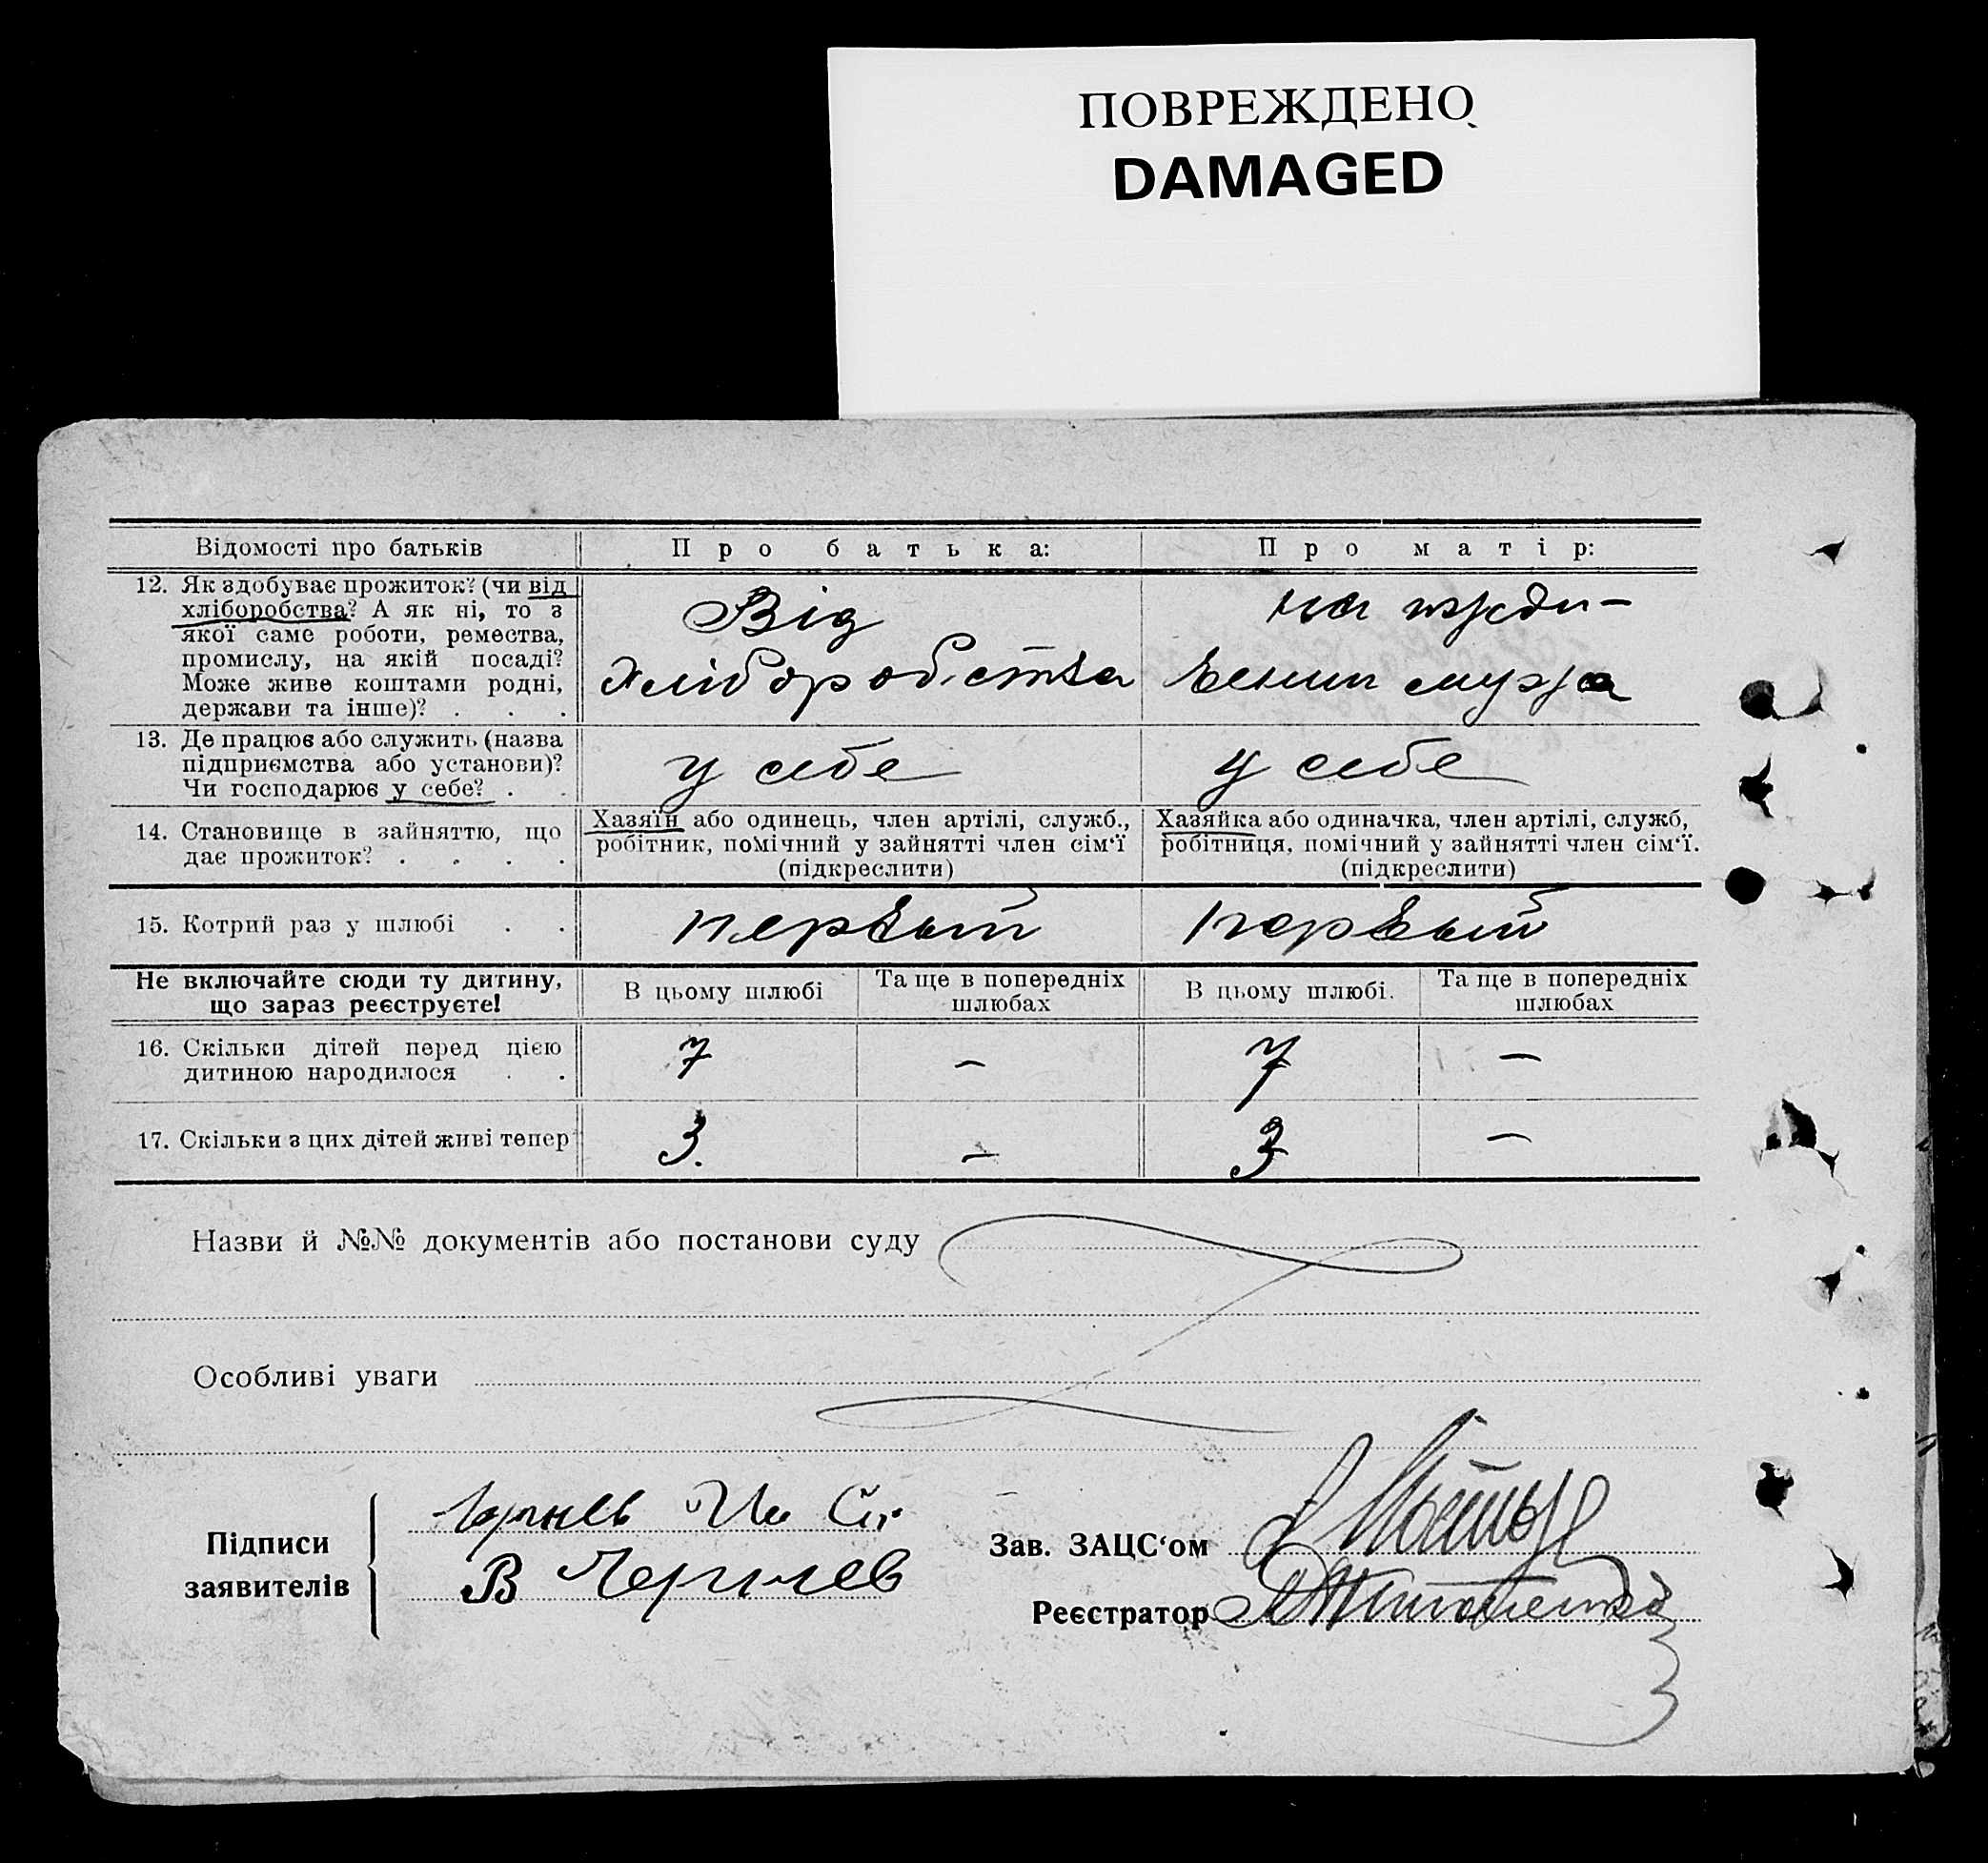 ПОВРЕЖДЕНО
DAMAGED
Відомості про батьків
Про батька:
Про матір:
12. Як здобуває прожиток? (чи від
хліборобства? А як ні, то з
якої саме роботи, ремества,
промислу, на якій посаді?
Може живе коштами родні,
держави та інше)? . . .
Від
хліборобства
на ижди-
вении мужа
13. Де працює або служить (назва
підприємства або установи)?
Чи господарює у себе? . .
у себе
у себе
14. Становище в зайняттю, що
дає прожиток? . . . .
Хазяїн або одинець, член артілі, служб.,
робітник, помічний у зайнятті член сім‘ї
(підкреслити)
Хазяйка або одиначка, член артілі, служб,
робітниця, помічний у зайнятті член сім‘ї.
(підкреслити)
15. Котрий раз у шлюбі . .
первый
первый
Не включайте сюди ту дитину,
що зараз реєструєте!
В цьому шлюбі
Та ще в попередніх
шлюбах
В цьому шлюбі.
Та ще в попередніх
шлюбах
16. Скільки дітей перед цією
дитиною народилося . .
7
–
7
–
17. Скільки з цих дітей живі тепер
3.
–
3
–
Назви й №№ документів або постанови суду
Особливі уваги
Підписи
заявителів
В Чернев
Зав. ЗАЦС‘ом
Реєстратор